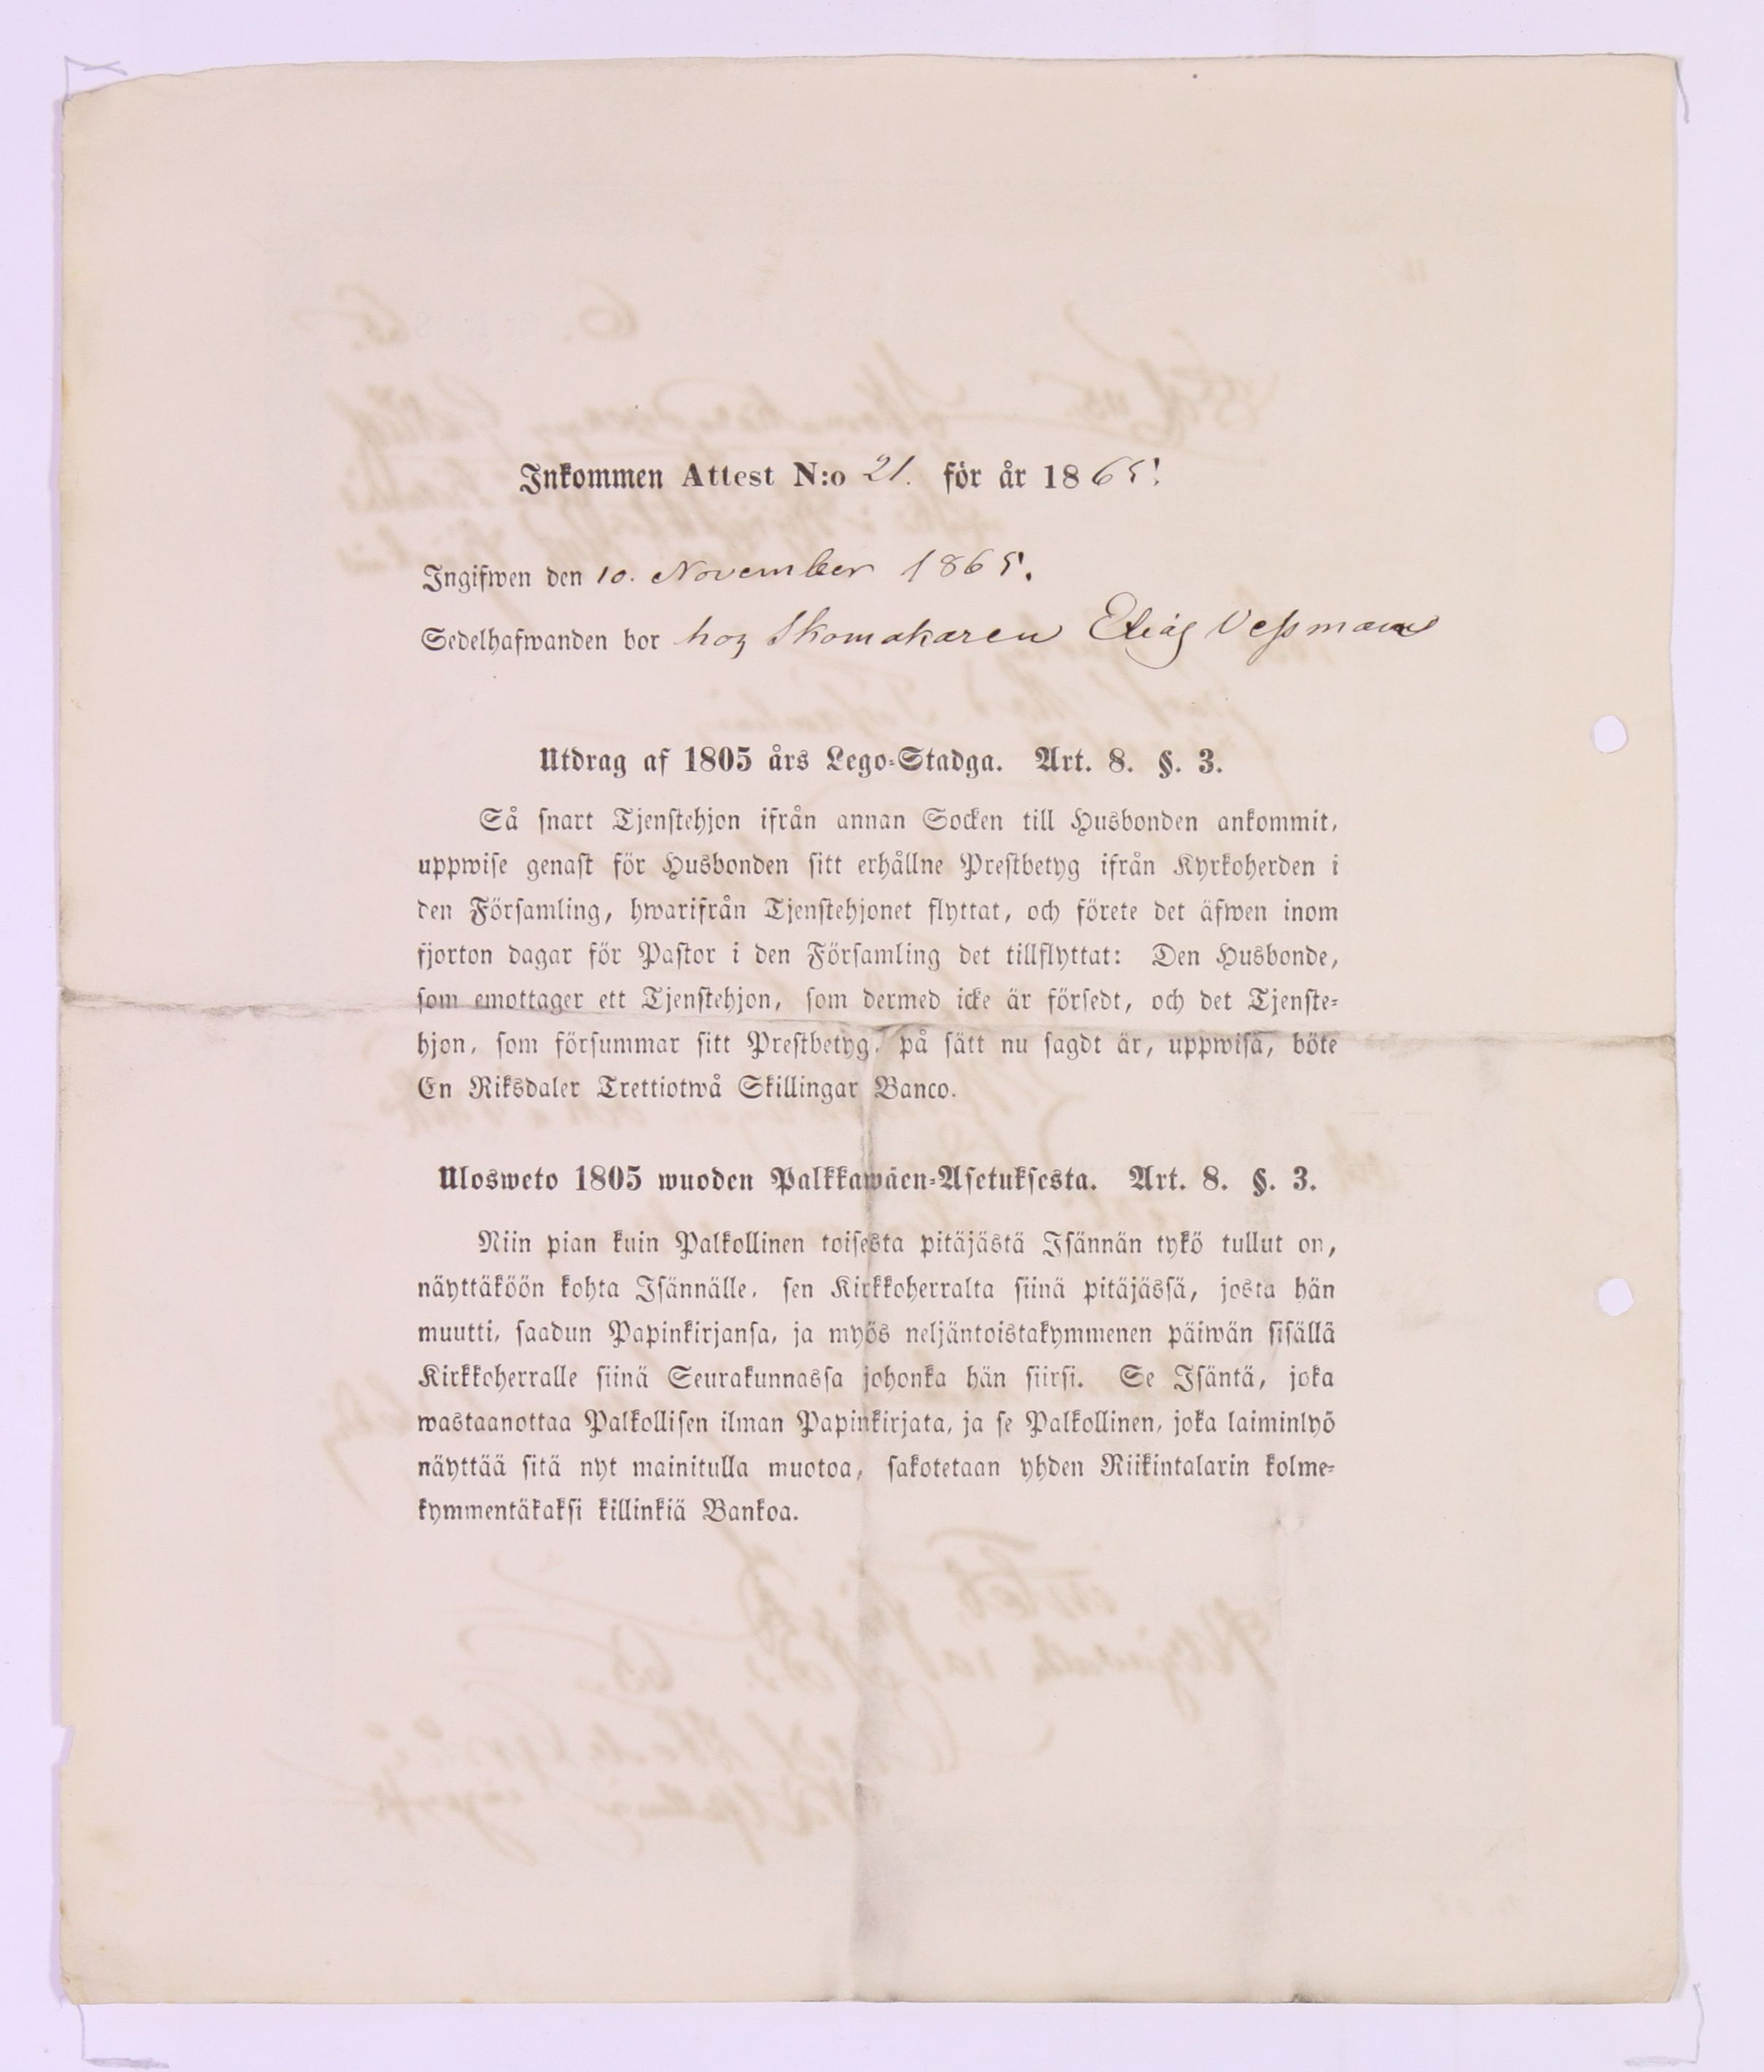 Inkommen Attest N:o 21. för år 1865.
Ingifwen den 10. November 1865.
Sedelhafwanden bor hoz Skomakaren Elias Vessman
Utdrag af 1805 års Lego-Stadga. Art. 8. §. 3.
Så snart Tjenstehjon ifrån annan Socken till Husbonden ankommit,
uppwise genast för Husbonden sitt erhållne Prestbetyg ifrån Kyrkoherden i
den Församling, hwarifrån Tjenstehjonet flyttat, och förete det äfwen inom
fjorton dagar för Pastor i den Församling det tillflyttat: Den Husbonde,
som emottager ett Tjenstehjon, som dermed icke är försedt, och det Tjenste-
hjon, som försummar sitt Prestbetyg, på sätt nu sagdt är, uppwisa, böte
En Riksdaler Trettiotwå Skillingar Banco.
Ulosweto 1805 wuoden Palkkawäen-Asetuksesta. Art. 8. §. 3.
Niin pian kuin Palkollinen toisesta pitäjästä Isännän tykö tullut on,
näyttäköön kohta Isännälle, sen Kirkkoherralta siinä pitäjässä, josta hän
muutti, saadun Papinkirjansa, ja myös neljäntoistakymmenen päiwän sisällä
Kirkkoherralle siinä Seurakunnassa johonka hän siirsi. Se Isäntä, joka
wastaanottaa Palkollisen ilman Papinkirjata, ja se Palkollinen, joka laiminlyö
näyttää sitä nyt mainitulla muotoa, sakotetaan yhden Riikintalarin kolme-
kymmentäkaksi killinkiä Bankoa.